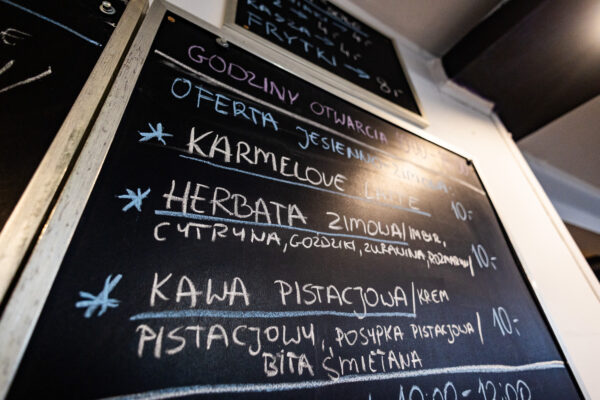 KASZA → 4,-
FRYTKI → 8,-
GODZINY OTWARCIA
OFERTA JESIENNO-ZIMOWA:
* KARMELOVE LATTE 10,-
* HERBATA ZIMOWA/IMBIR,
CYTRYNA, GOŹDZIKI, ŻURAWINA, ROZMARYN/ 10,-
* KAWA PISTACJOWA/KREM
PISTACJOWY, POSYPKA PISTACJOWA/ 10,-
BITA ŚMIETANA
10:00-12:00